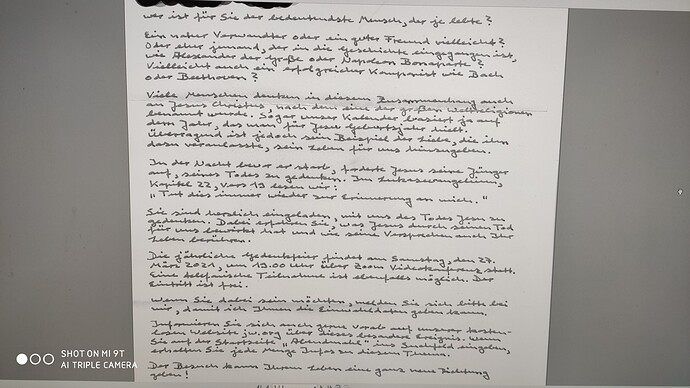 wer ist für Sie der bedeutendste Mensch, der je lebte?
Ein naher Verwandter oder ein guter Freund vielleicht?
Oder eher jemand, der in die Geschichte eingegangen ist,
wie Alexander der Große oder Napoleon Bonaparte?
Vielleicht auch ein erfolgreicher Komponist wie Bach
oder Beethoven?
Viele Menschen denken in diesem Zusammenhang auch
an Jesus Christus, nach dem eine der großen Weltreligionen
benannt wurde. Sogar unser Kalender basiert ja auf
dem Jahr, das man für Jesu Geburtsjahr hielt.
Überragend ist jedoch sein Beispiel der Liebe, die ihn
dazu veranlasste, sein Leben für uns hinzugeben.
In der Nacht bevor er starb, forderte Jesus seine Jünger
auf, seines Todes zu gedenken. Im Lukasevangelium,
Kapitel 22, Vers 19 lesen wir:
"Tut dies immer wieder zur Erinnerung an mich."
Sie sind herzlich eingeladen, mit uns des Todes Jesu zu
gedenken. Dabei erfahren Sie, was Jesus durch seinen Tod
für uns bewirkt hat und wie seine Versprechen auch Ihr
Leben berühren.
Die jährliche Gedenkfeier findet am Samstag, den 27.
März 2021, um 19.00 Uhr über Zoom Videokonferenz statt.
Eine telefonische Teilnahme ist ebenfalls möglich. Der
Eintritt ist frei.
Wenn Sie dabei sein möchten, melden Sie sich bitte bei
mir, damit ich Ihnen die Einwahldaten geben kann.
Informieren Sie sich auch gerne vorab auf unserer kosten-
losen Website jw.org über dieses besondere Ereignis. Wenn
Sie auf der Startseite "Abendmahl" ins Suchfeld eingeben,
erhalten Sie jede Menge Infos zu diesem Thema.
Der Besuch kann Ihrem Leben eine ganz neue Richtung
geben!
SHOT ON MI 9T
AI TRIPLE CAMERA